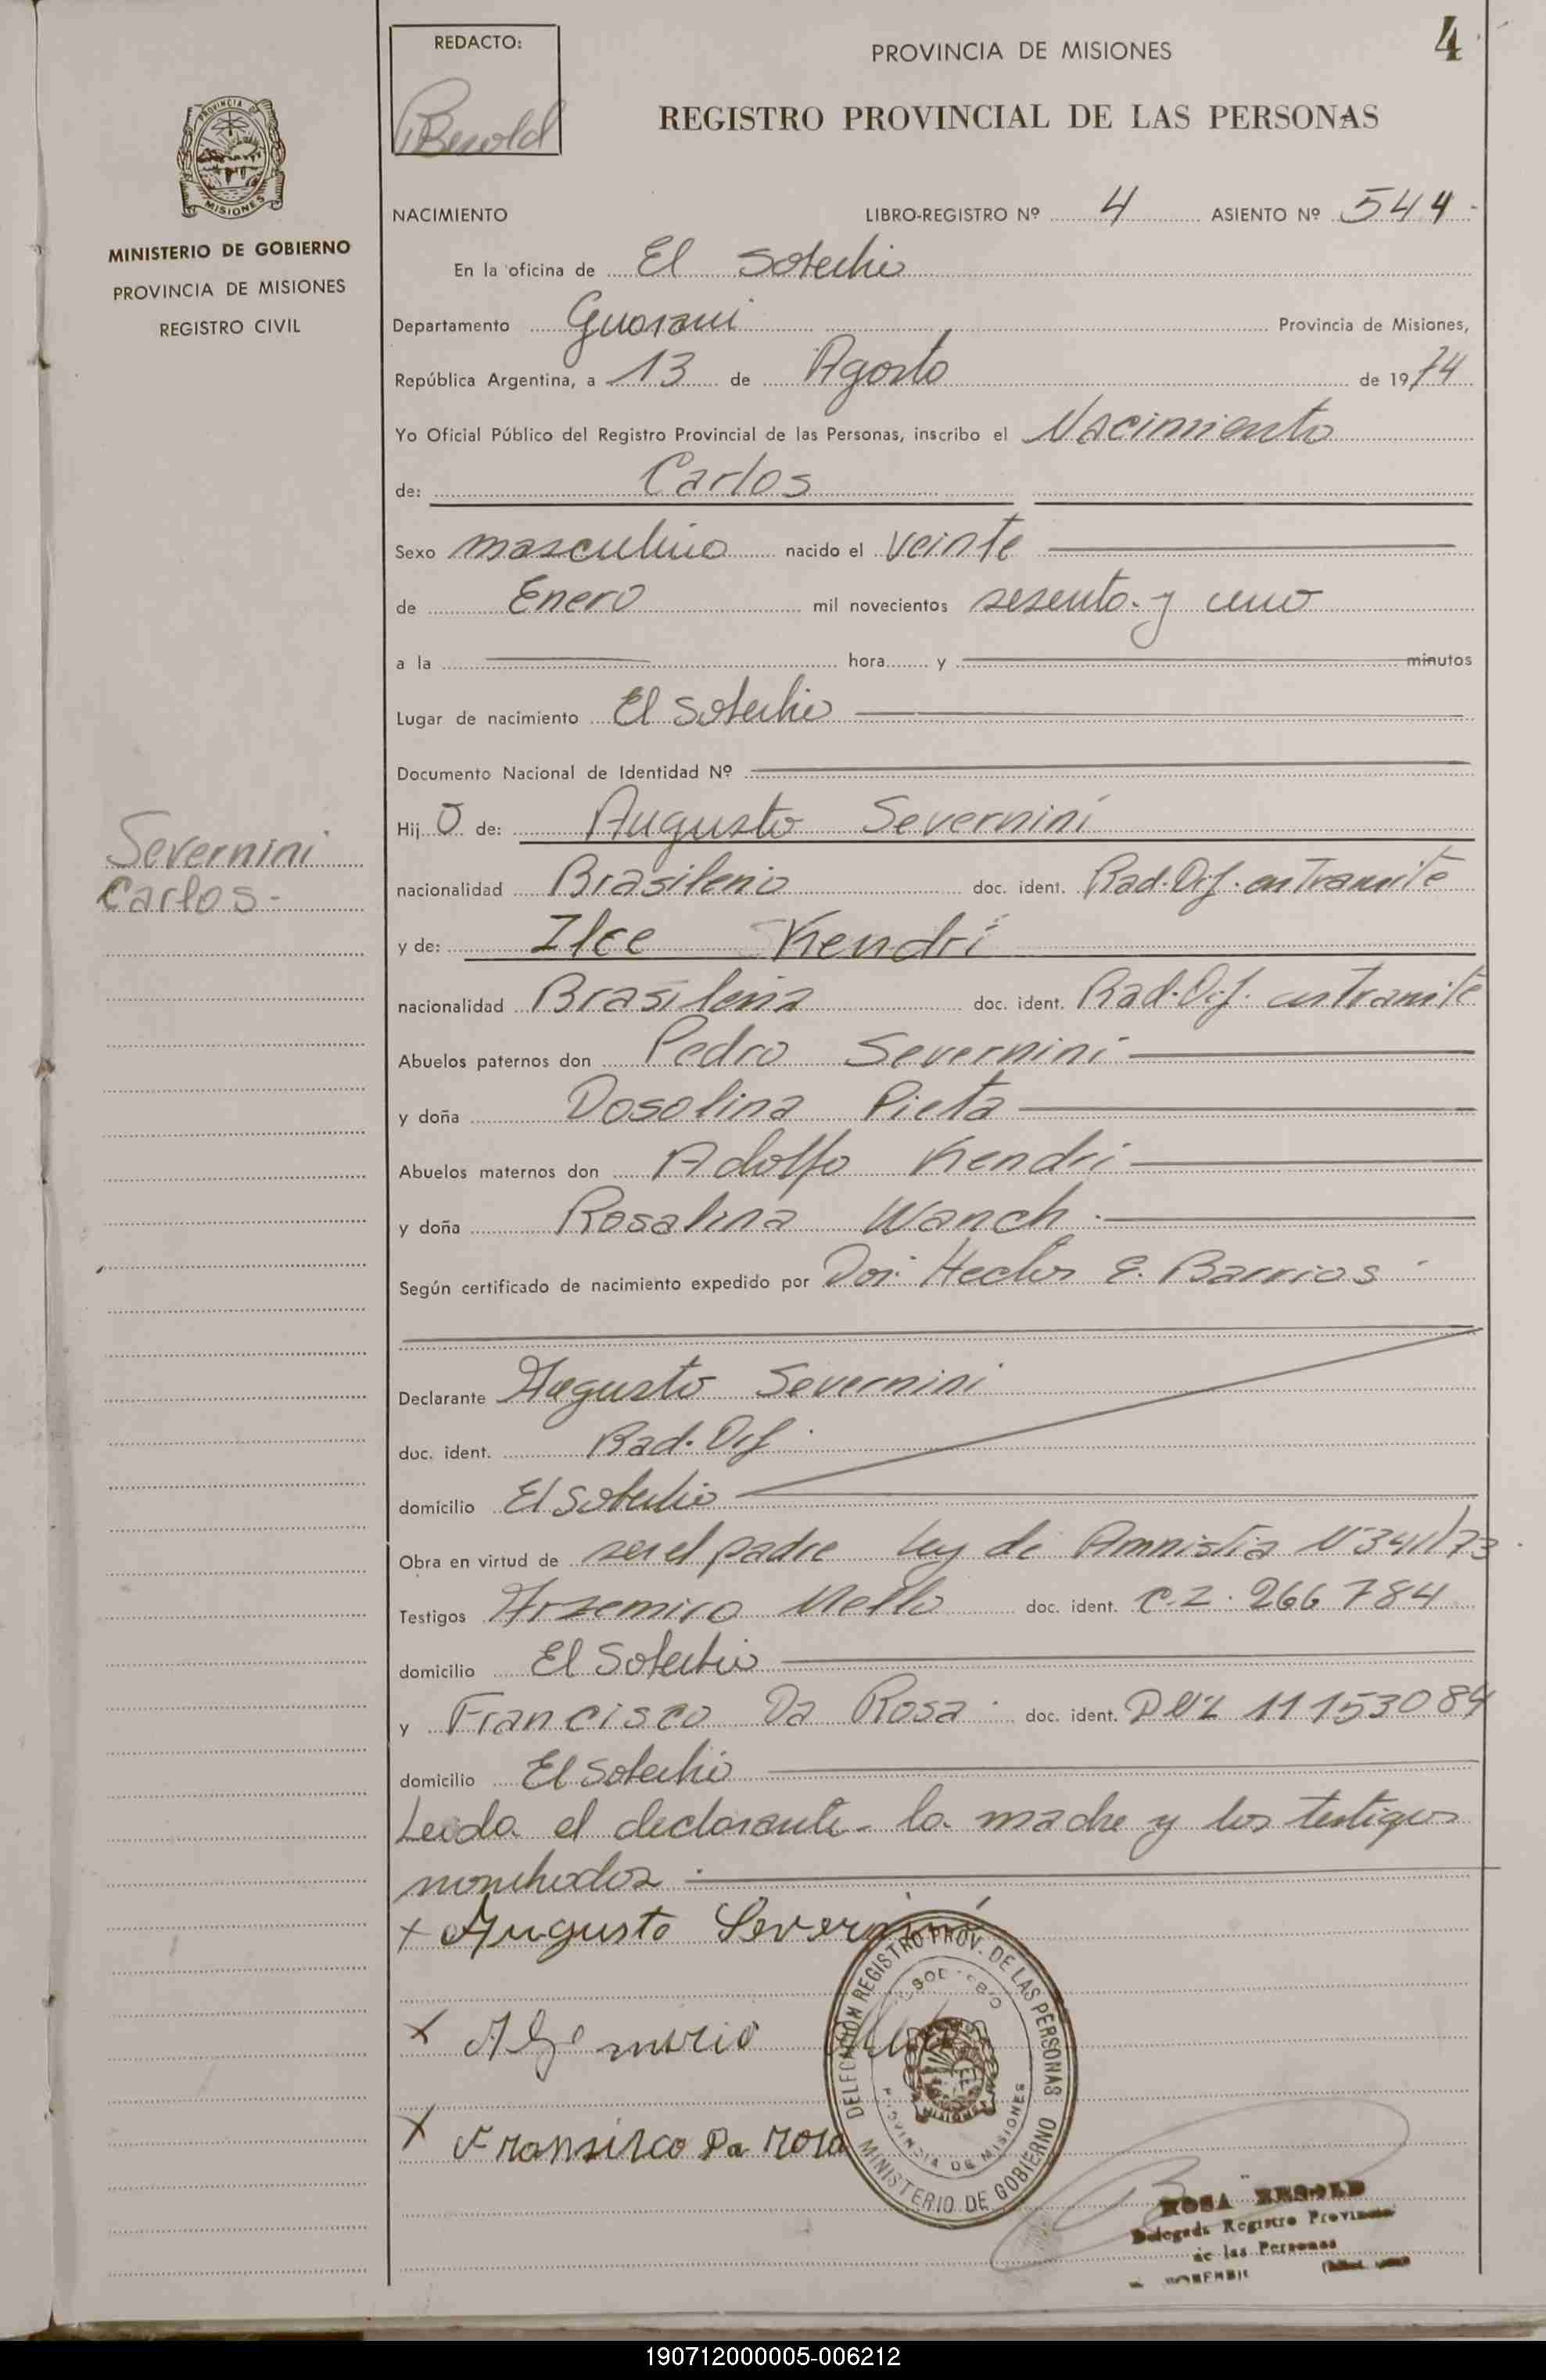 REDACTO:
PROVINCIA DE MISIONES
4
REGISTRO PROVINCIAL DE LAS PERSONAS
PROVINCIA DE
MISIONES
MINISTERIO DE GOBIERNO
PROVINCIA DE MISIONES
REGISTRO CIVIL
NACIMIENTO LIBRO-REGISTRO Nº 4 ASIENTO Nº 544.-
En la oficina de El Soberbio
Departamento Guarani Provincia de Misiones,
República Argentina, a 13 de Agosto de 1974
Yo Oficial Público del Registro Provincial de las Personas, inscribo el Nacimiento
de: Carlos
Sexo masculino nacido el veinte
de Enero mil novecientos sesenta y uno
a la hora y minutos
Lugar de nacimiento El Soberbio
Documento Nacional de Identidad Nº
Severnini
Carlos-
Hij o de: Augusto Severnini
nacionalidad Brasilenio doc. ident. Rad. Dif. en Tramite
y de: Ilce Kendri
nacionalidad Brasilenia doc. ident. Rad. Dif. en tramite
Abuelos paternos don Pedro Severnini
y doña Dosolina Pieta
Abuelos maternos don Adolfo Kendri
y doña Rosalina Wanch.
Según certificado de nacimiento expedido por Hector E. Barrios
Declarante Augusto Severnini
doc. ident. Rad. Dif.
domicilio El Soberbio
Obra en virtud de ser el padre Ley de Amnistia Nº 341/73.
Testigos Arzemiro Mello doc. ident. C.I. 266784
domicilio El Soberbio
y Francisco Da Rosa. doc. ident. 11153084
domicilio El Soberbio
Leida el declarante- la madre y los testigos
nombrados.
x Augusto Severnini
x
x Fransisco Da rosa
DELEGACIÓN REGISTRO PROV. DE LAS PERSONAS
PROVINCIA DE MISIONES
MISIONES
MINISTERIO DE GOBIERNO
ROSA BESOLD
Delegada Registro Provincial
de las Personas
190712000005-006212